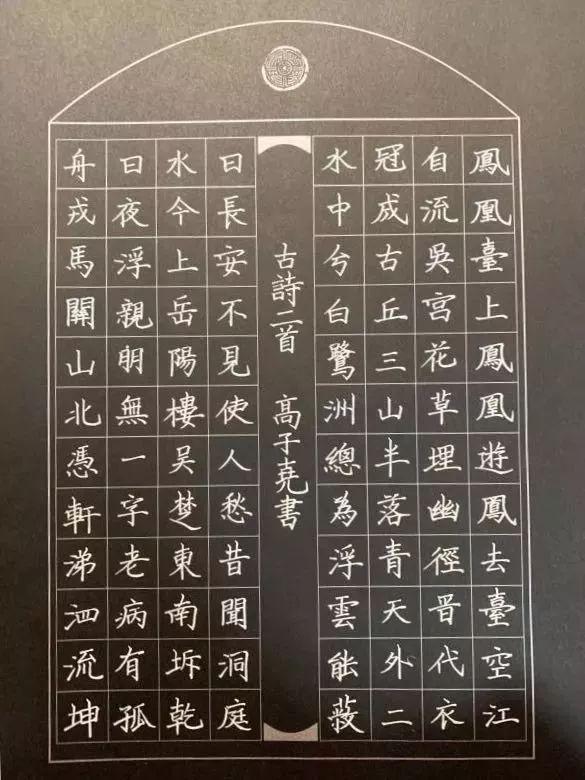 鳳凰臺上鳳凰遊鳳去臺空江
自流吳宮花草埋幽徑晋代衣
冠成古丘三山半落青天外二
水中兮白鷺洲總為浮雲能蔽
古詩二首 高子尧書
日長安不見使人愁昔聞洞庭
水今上岳陽樓吴楚東南坼乾
日夜浮親朋無一字老病有孤
舟戎馬關山北憑軒涕泗流坤